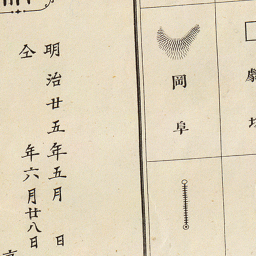 劇
岡阜
明治廿五年五月　日
仝　　　年六月廿八日